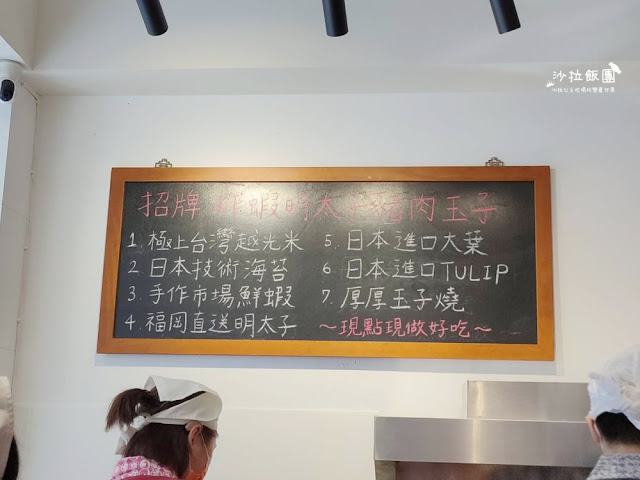 沙拉飯團
招牌 炸蝦明太子豬肉玉子
1. 極上台灣越光米
2. 日本技術海苔
3. 手作市場鮮蝦
4. 福岡直送明太子
5. 日本進口大葉
6. 日本進口TULIP
7. 厚厚玉子燒
～現點現做好吃～